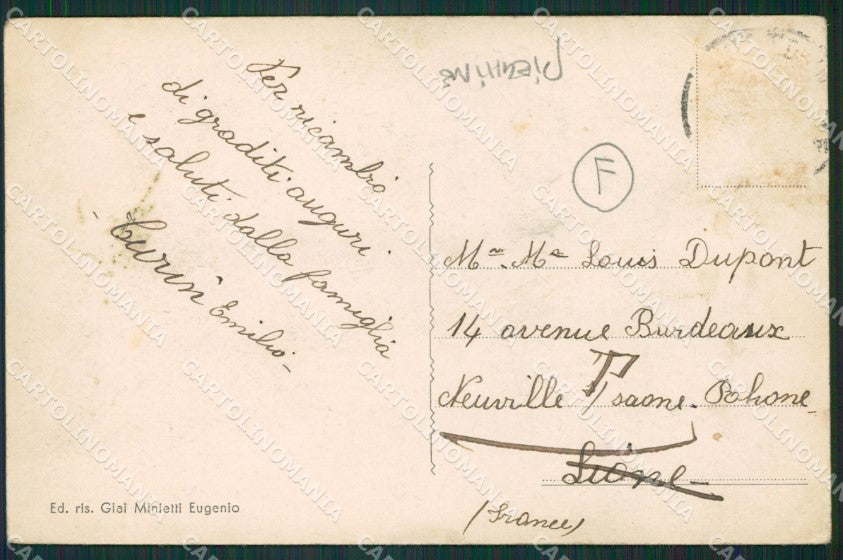 Per ricambio
di graditi auguri
e saluti dalla famiglia
- Turin Emilio -
F
Mr. Me Louis Dupont
14 avenue Burdeaux
Neuville T/saone - Rhone -
Lione -
(France)
Ed. ris. Giai Minietti Eugenio
CARTOLINOMANIA